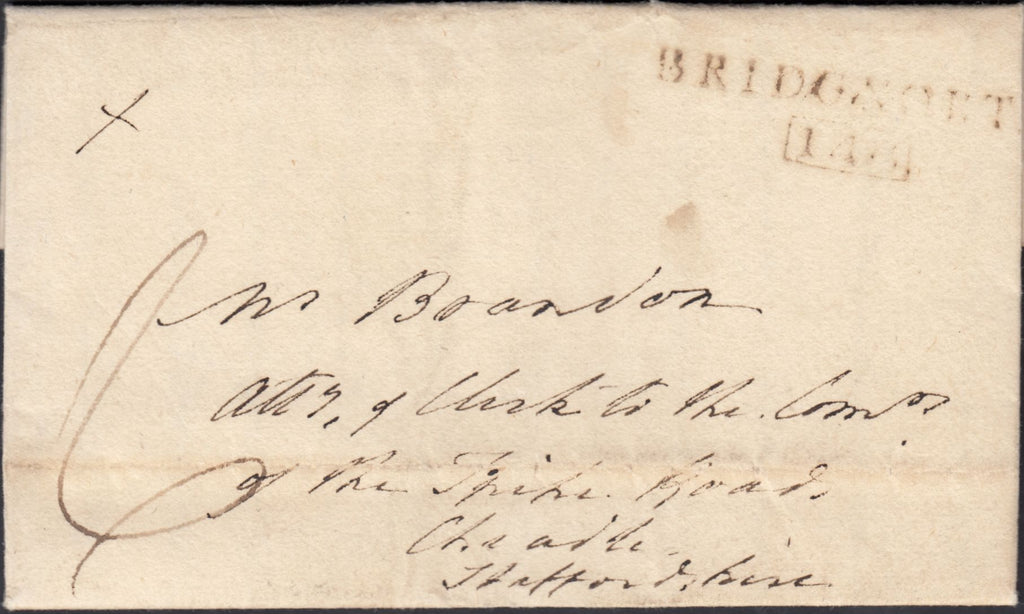 BRIDGNORT
148
Mr Brandon
Atty, & Clerk to the Comrs
of the Road,
Cheadle
Staffordshire